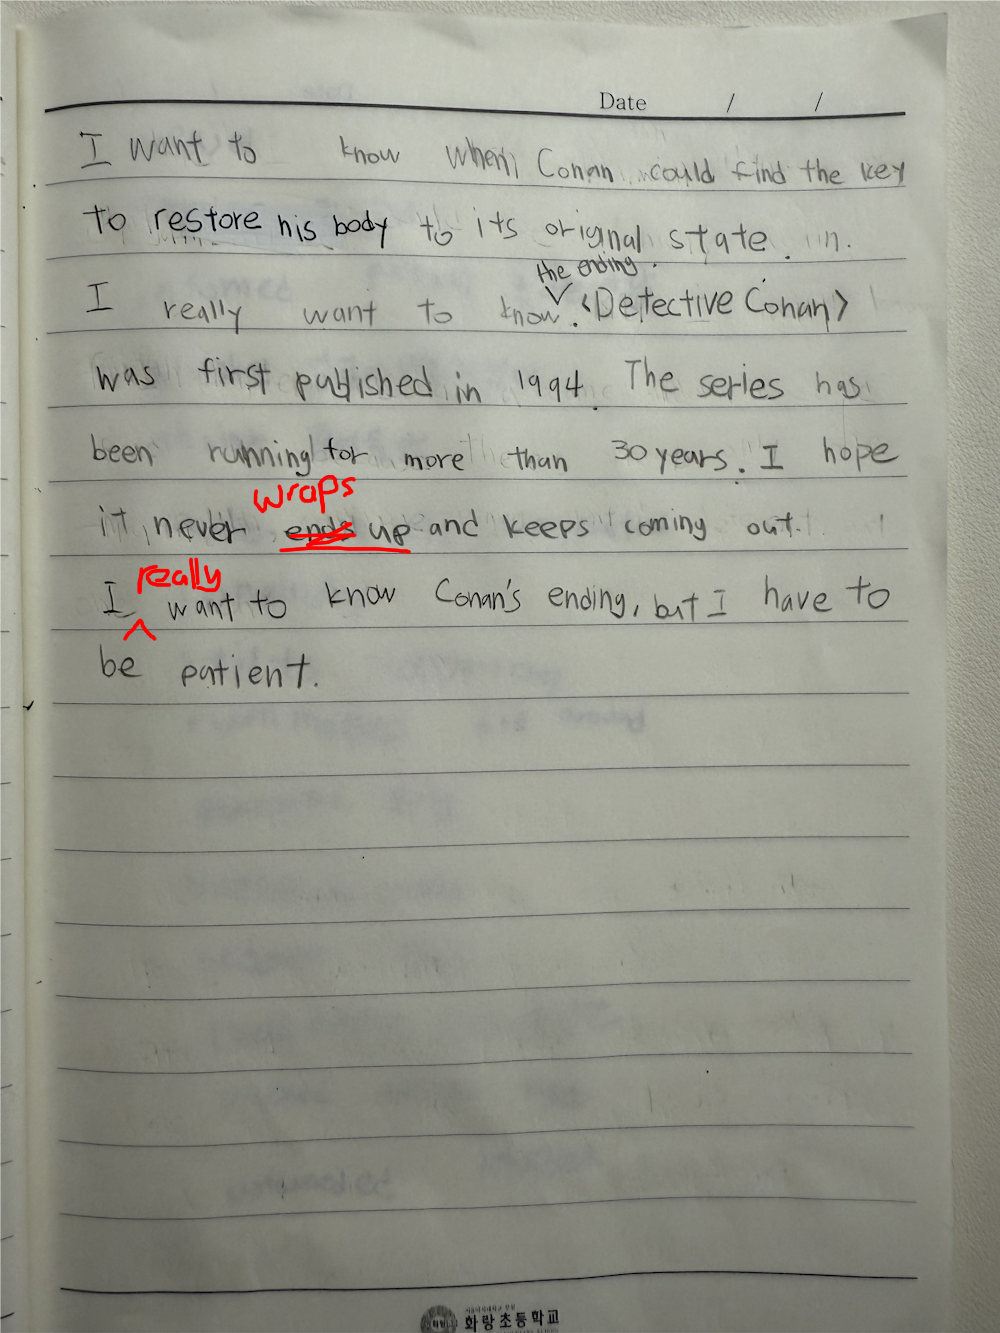 Date / /
I want to know when Conan could find the key
to restore his body to its original state.
the ending.
I really want to know. <Detective Conan>
was first published in 1994. The series has
been running for more than 30 years. I hope
wraps
it never ends up and keeps coming out.
really
I want to know Conan's ending, but I have to
be patient.
화랑초등학교